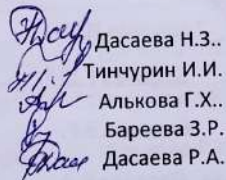 Дасаева Н.З..
Тинчурин И.И.
Алькова Г.Х..
Бареева З.Р.
Дасаева Р.А.